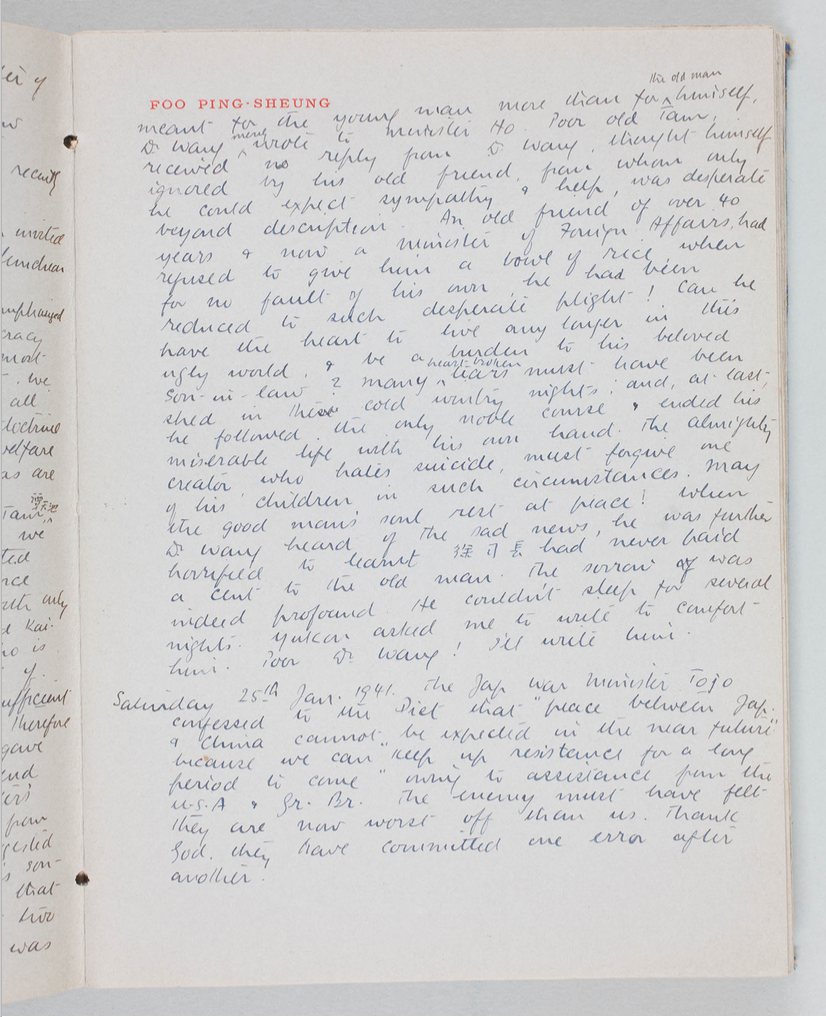 recently
invited
we
all
doctrine
welfare
as are
Tam
we
only
Kai-
is
sufficient
Therefore
gave
from
son-
that
two
was
FOO PING-SHEUNG
the old man
meant for the young man more than for ^ himself.
Dr Wang merely wrote to minister Ho. Poor old Tam,
received no reply from Dr Wang, thought himself
ignored by his old friend, from whom only
he could expect sympathy & help, was desperate
beyond description. An old friend of over 40
years & now a minister of Foreign Affairs, had
refused to give him a bowl of rice, when
for no fault of his own, he had been
reduced to such desperate plight! Can he
have the heart to live any longer in this
ugly world, & be a burden to his beloved
son-in-law? many heart-broken tears must have been
shed in these cold wintry nights; and, at last,
he followed the only noble course & ended his
miserable life with his own hand. The almighty
creator who hates suicide, must forgive one
of his children in such circumstances. May
the good man's soul rest at peace! When
Dr Wang heard of the sad news, he was further
horrified to learnt 徐司長 had never paid
a cent to the old man. The sorrow was
indeed profound. He couldn't sleep for several
nights. Yukon asked me to write to comfort
him. Poor Dr Wang! I'll write him.
Saturday 25th Jan. 1941. The Jap war minister Tojo
confessed to the Diet that "peace between Jap.
& China cannot be expected in the near future"
because we can "keep up resistance for a long
period to come" owing to assistance from the
U.S.A & Gr. Br. The enemy must have felt
they are now worst off than us. Thank
God, they have committed one error after
another.